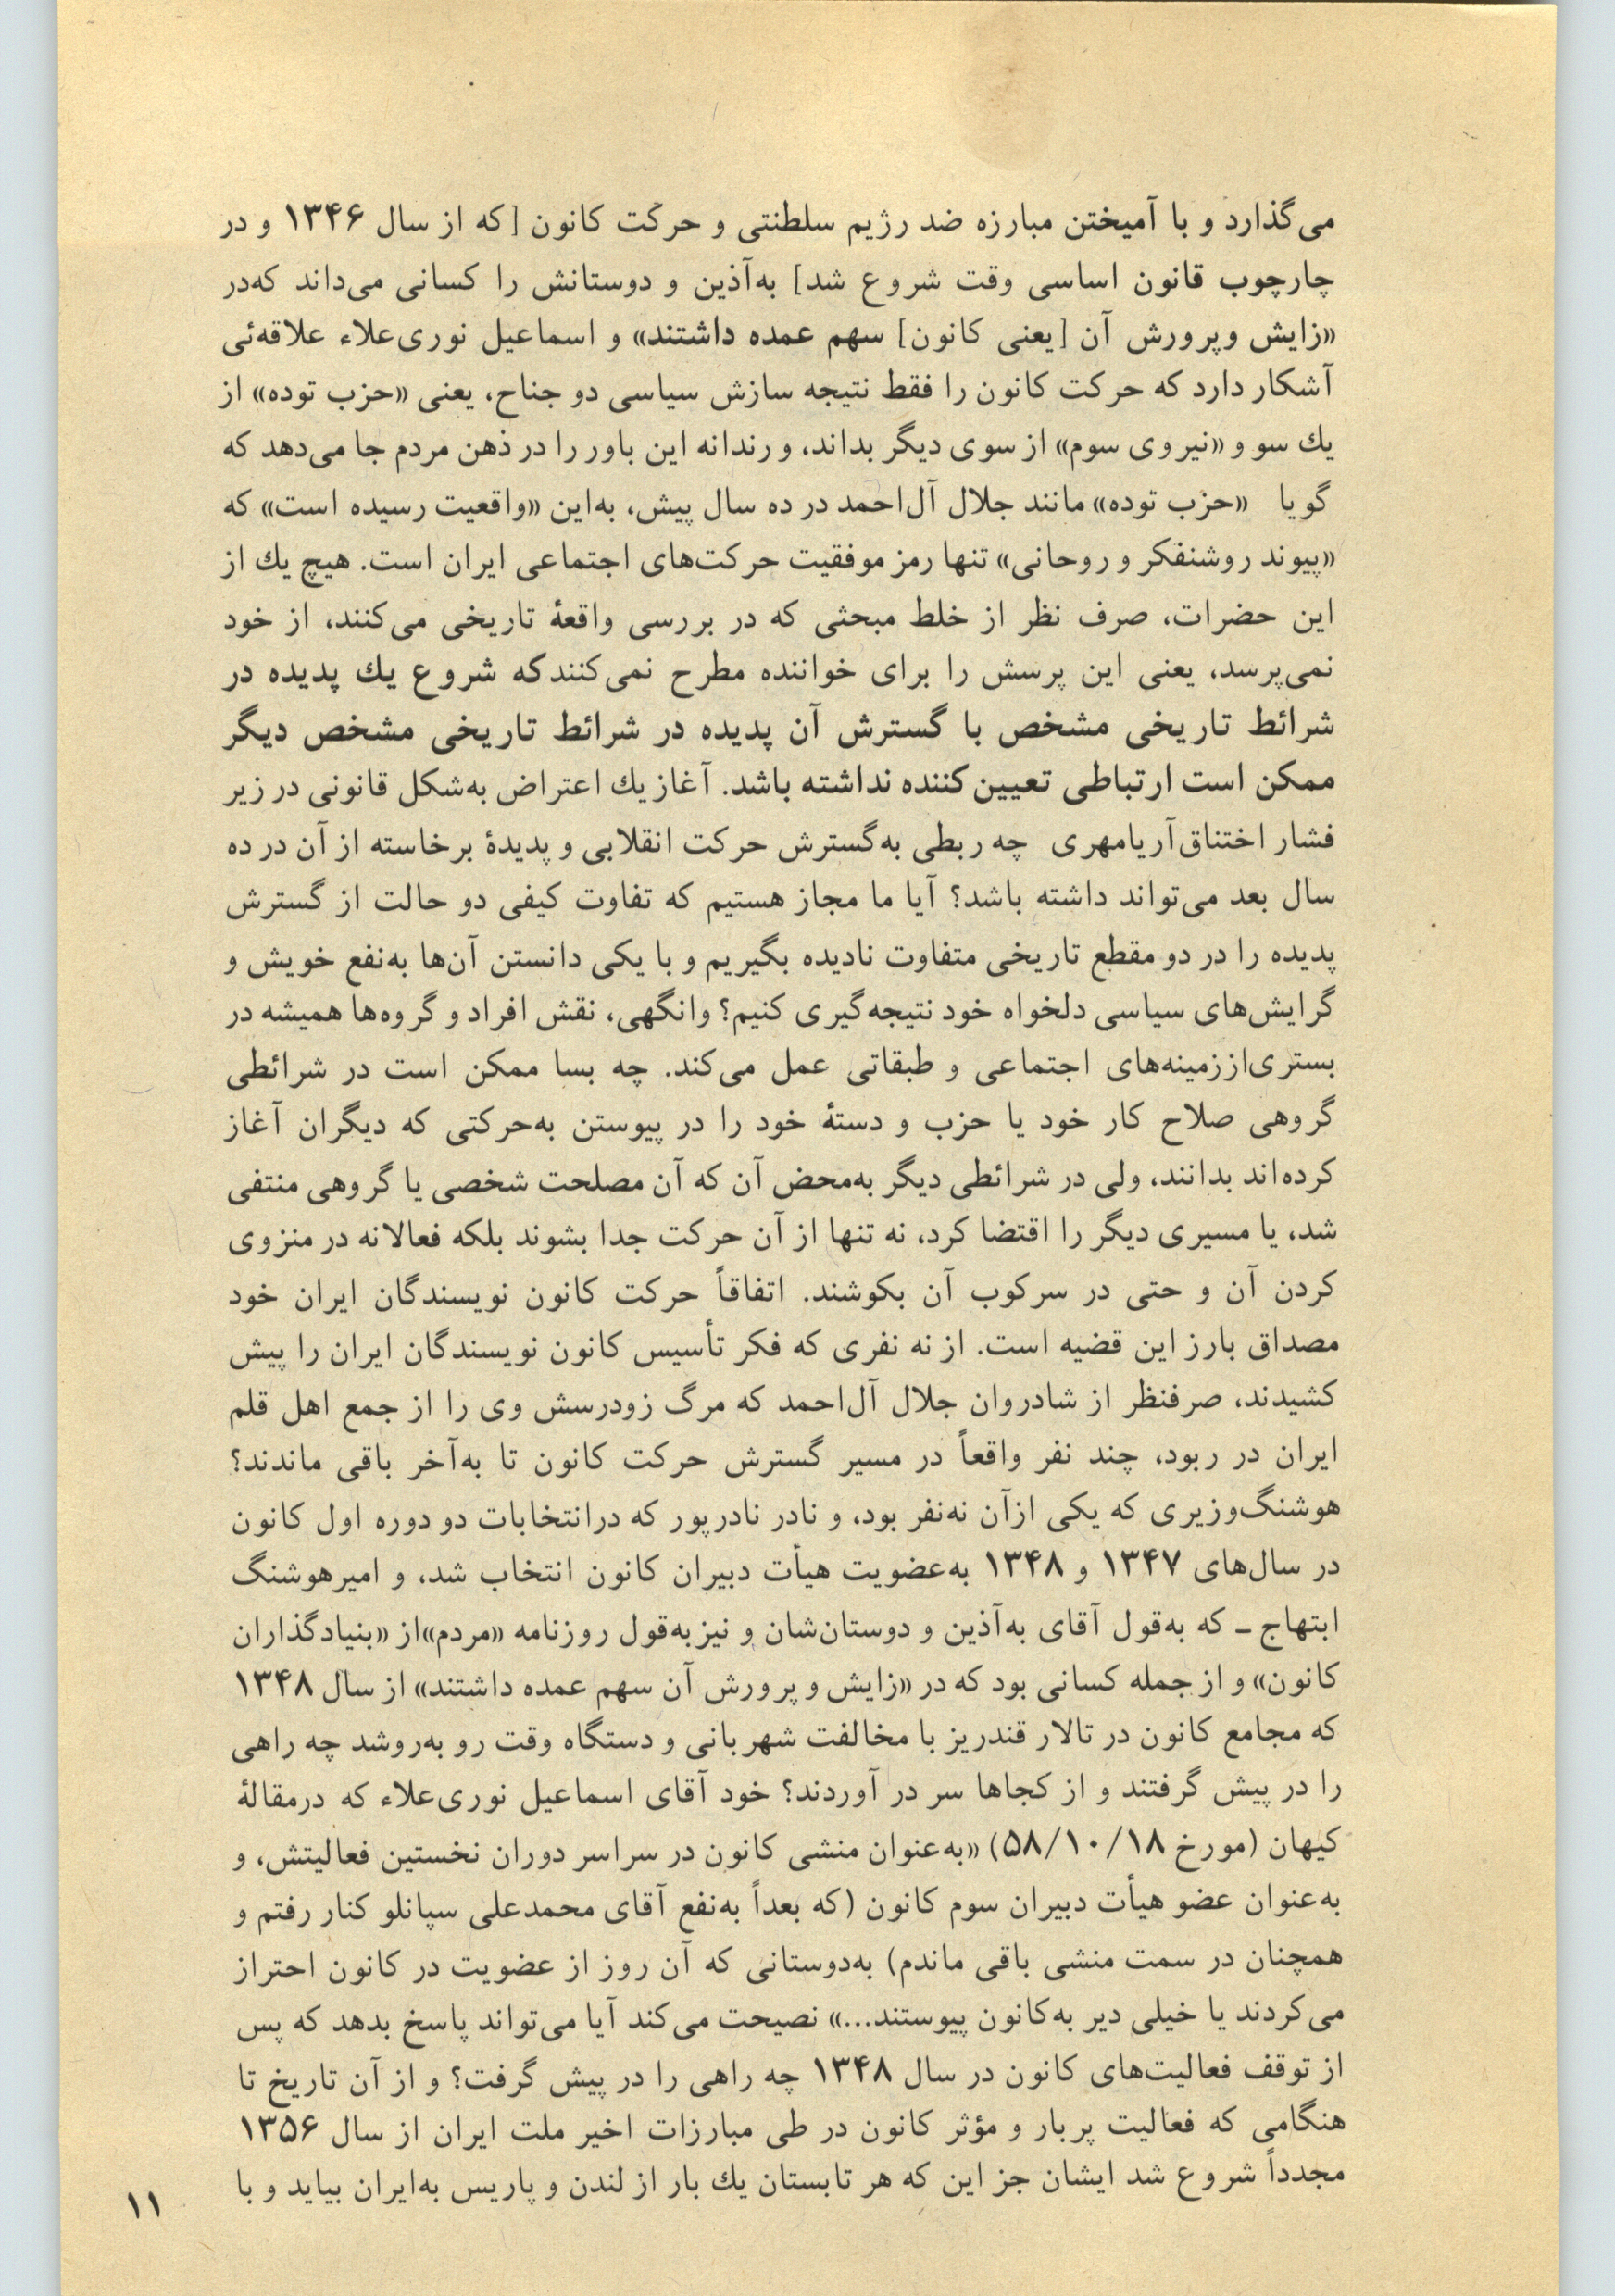 می‌گذارد و با آمیختن مبارزه ضد رژیم سلطنتی و حرکت کانون [که از سال ۱۳۴۶ و در
چارچوب قانون اساسی وقت شروع شد] به‌آذین و دوستانش را کسانی می‌داند که‌در
«زایش و پرورش آن [یعنی کانون] سهم عمده داشتند» و اسماعیل نوری‌علاء علاقه‌ئی
آشکار دارد که حرکت کانون را فقط نتیجه سازش سیاسی دو جناح، یعنی «حزب توده» از
یك سو و «نیروی سوم» از سوی دیگر بداند، و رندانه این باور را در ذهن مردم جا می‌دهد که
گویا «حزب توده» مانند جلال آل‌احمد در ده سال پیش، به‌این «واقعیت رسیده است» که
«پیوند روشنفکر و روحانی» تنها رمز موفقیت حرکت‌های اجتماعی ایران است. هیچ یك از
این حضرات، صرف نظر از خلط مبحثی که در بررسی واقعۀ تاریخی می‌کنند، از خود
نمی‌پرسد، یعنی این پرسش را برای خواننده مطرح نمی‌کنندکه شروع یك پدیده در
شرائط تاریخی مشخص با گسترش آن پدیده در شرائط تاریخی مشخص دیگر
ممکن است ارتباطی تعیین‌کننده نداشته باشد. آغاز یك اعتراض به‌شکل قانونی در زیر
فشار اختناق آریامهری چه ربطی به‌گسترش حرکت انقلابی و پدیدۀ برخاسته از آن در ده
سال بعد می‌تواند داشته باشد؟ آیا ما مجاز هستیم که تفاوت کیفی دو حالت از گسترش
پدیده را در دو مقطع تاریخی متفاوت نادیده بگیریم و با یکی دانستن آن‌ها به‌نفع خویش و
گرایش‌های سیاسی دلخواه خود نتیجه‌گیری کنیم؟ وانگهی، نقش افراد و گروه‌ها همیشه در
بستری‌اززمینه‌های اجتماعی و طبقاتی عمل می‌کند. چه بسا ممکن است در شرائطی
گروهی صلاح کار خود یا حزب و دستۀ خود را در پیوستن به‌حرکتی که دیگران آغاز
کرده‌اند بدانند، ولی در شرائطی دیگر به‌محض آن که آن مصلحت شخصی یا گروهی منتفی
شد، یا مسیری دیگر را اقتضا کرد، نه تنها از آن حرکت جدا بشوند بلکه فعالانه در منزوی
کردن آن و حتی در سرکوب آن بکوشند. اتفاقاً حرکت کانون نویسندگان ایران خود
مصداق بارز این قضیه است. از نه نفری که فکر تأسیس کانون نویسندگان ایران را پیش
کشیدند، صرفنظر از شادروان جلال آل‌احمد که مرگ زودرسش وی را از جمع اهل قلم
ایران در ربود، چند نفر واقعاً در مسیر گسترش حرکت کانون تا به‌آخر باقی ماندند؟
هوشنگ‌وزیری که یکی ازآن نه‌نفر بود، و نادر نادرپور که درانتخابات دو دوره اول کانون
در سال‌های ۱۳۴۷ و ۱۳۴۸ به‌عضویت هیأت دبیران کانون انتخاب شد، و امیرهوشنگ
ابتهاج ـ که به‌قول آقای به‌آذین و دوستان‌شان و نیزبه‌قول روزنامه «مردم»از «بنیادگذاران
کانون» و از جمله کسانی بود که در «زایش و پرورش آن سهم عمده داشتند» از سال ۱۳۴۸
که مجامع کانون در تالار قندریز با مخالفت شهربانی و دستگاه وقت رو به‌روشد چه راهی
را در پیش گرفتند و از کجاها سر در آوردند؟ خود آقای اسماعیل نوری‌علاء که درمقالۀ
کیهان (مورخ ۵۸/۱۰/۱۸) «به‌عنوان منشی کانون در سراسر دوران نخستین فعالیتش، و
به‌عنوان عضو هیأت دبیران سوم کانون (که بعداً به‌نفع آقای محمدعلی سپانلو کنار رفتم و
همچنان در سمت منشی باقی ماندم) به‌دوستانی که آن روز از عضویت در کانون احتراز
می‌کردند یا خیلی دیر به‌کانون پیوستند...» نصیحت می‌کند آیا می‌تواند پاسخ بدهد که پس
از توقف فعالیت‌های کانون در سال ۱۳۴۸ چه راهی را در پیش گرفت؟ و از آن تاریخ تا
هنگامی که فعالیت پربار و مؤثر کانون در طی مبارزات اخیر ملت ایران از سال ۱۳۵۶
مجدداً شروع شد ایشان جز این که هر تابستان یك بار از لندن و پاریس به‌ایران بیاید و با
۱۱